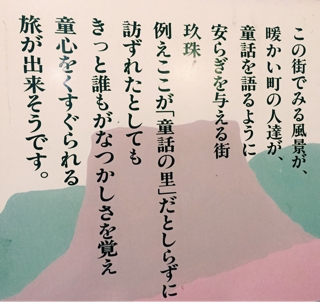 この街でみる風景が、
暖かい町の人達が、
童話を語るように
安らぎを与える街
玖珠。
例えここが「童話の里」だとしらずに
訪ずれたとしても
きっと誰もがなつかしさを覚え
童心をくすぐられる
旅が出来そうです。